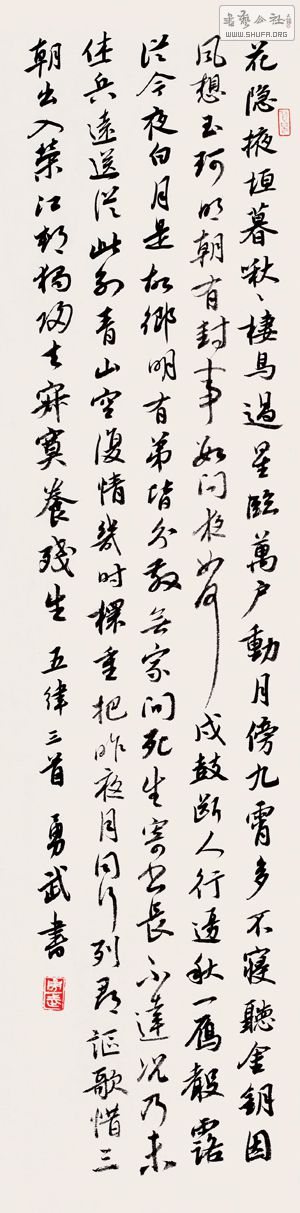 书艺公社
WWW.SHUFA.ORG
花隐掖垣暮啾々棲鸟過星臨萬户動月傍九霄多不寝聽金鑰因
風想玉珂明朝有封事数问夜如何戍鼓断人行邊秋一雁聲露
從今夜白月是故鄉明有弟皆分散無家问死生寄书長不達况乃未
休兵遠送從此别青山空復情幾时杯重把昨夜月同行列郡謳歌惜三
朝出入荣江邨獨归去寂寞養殘生 五律三首 勇武書